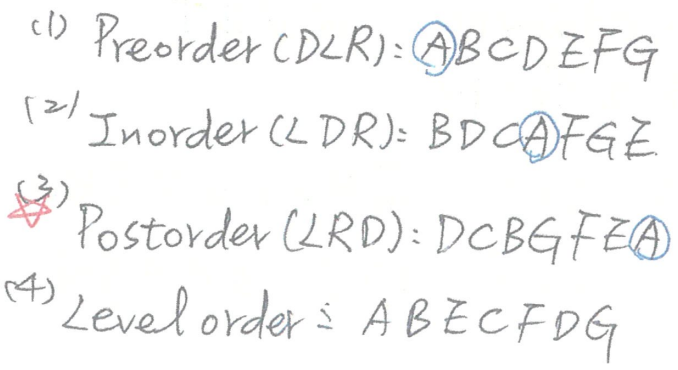 (1) Preorder (DLR): ABCDEFG
(2) Inorder (LDR): BDCAFGE
(3) Postorder (LRD): DCBGFEA
(4) Level order: ABECFDG